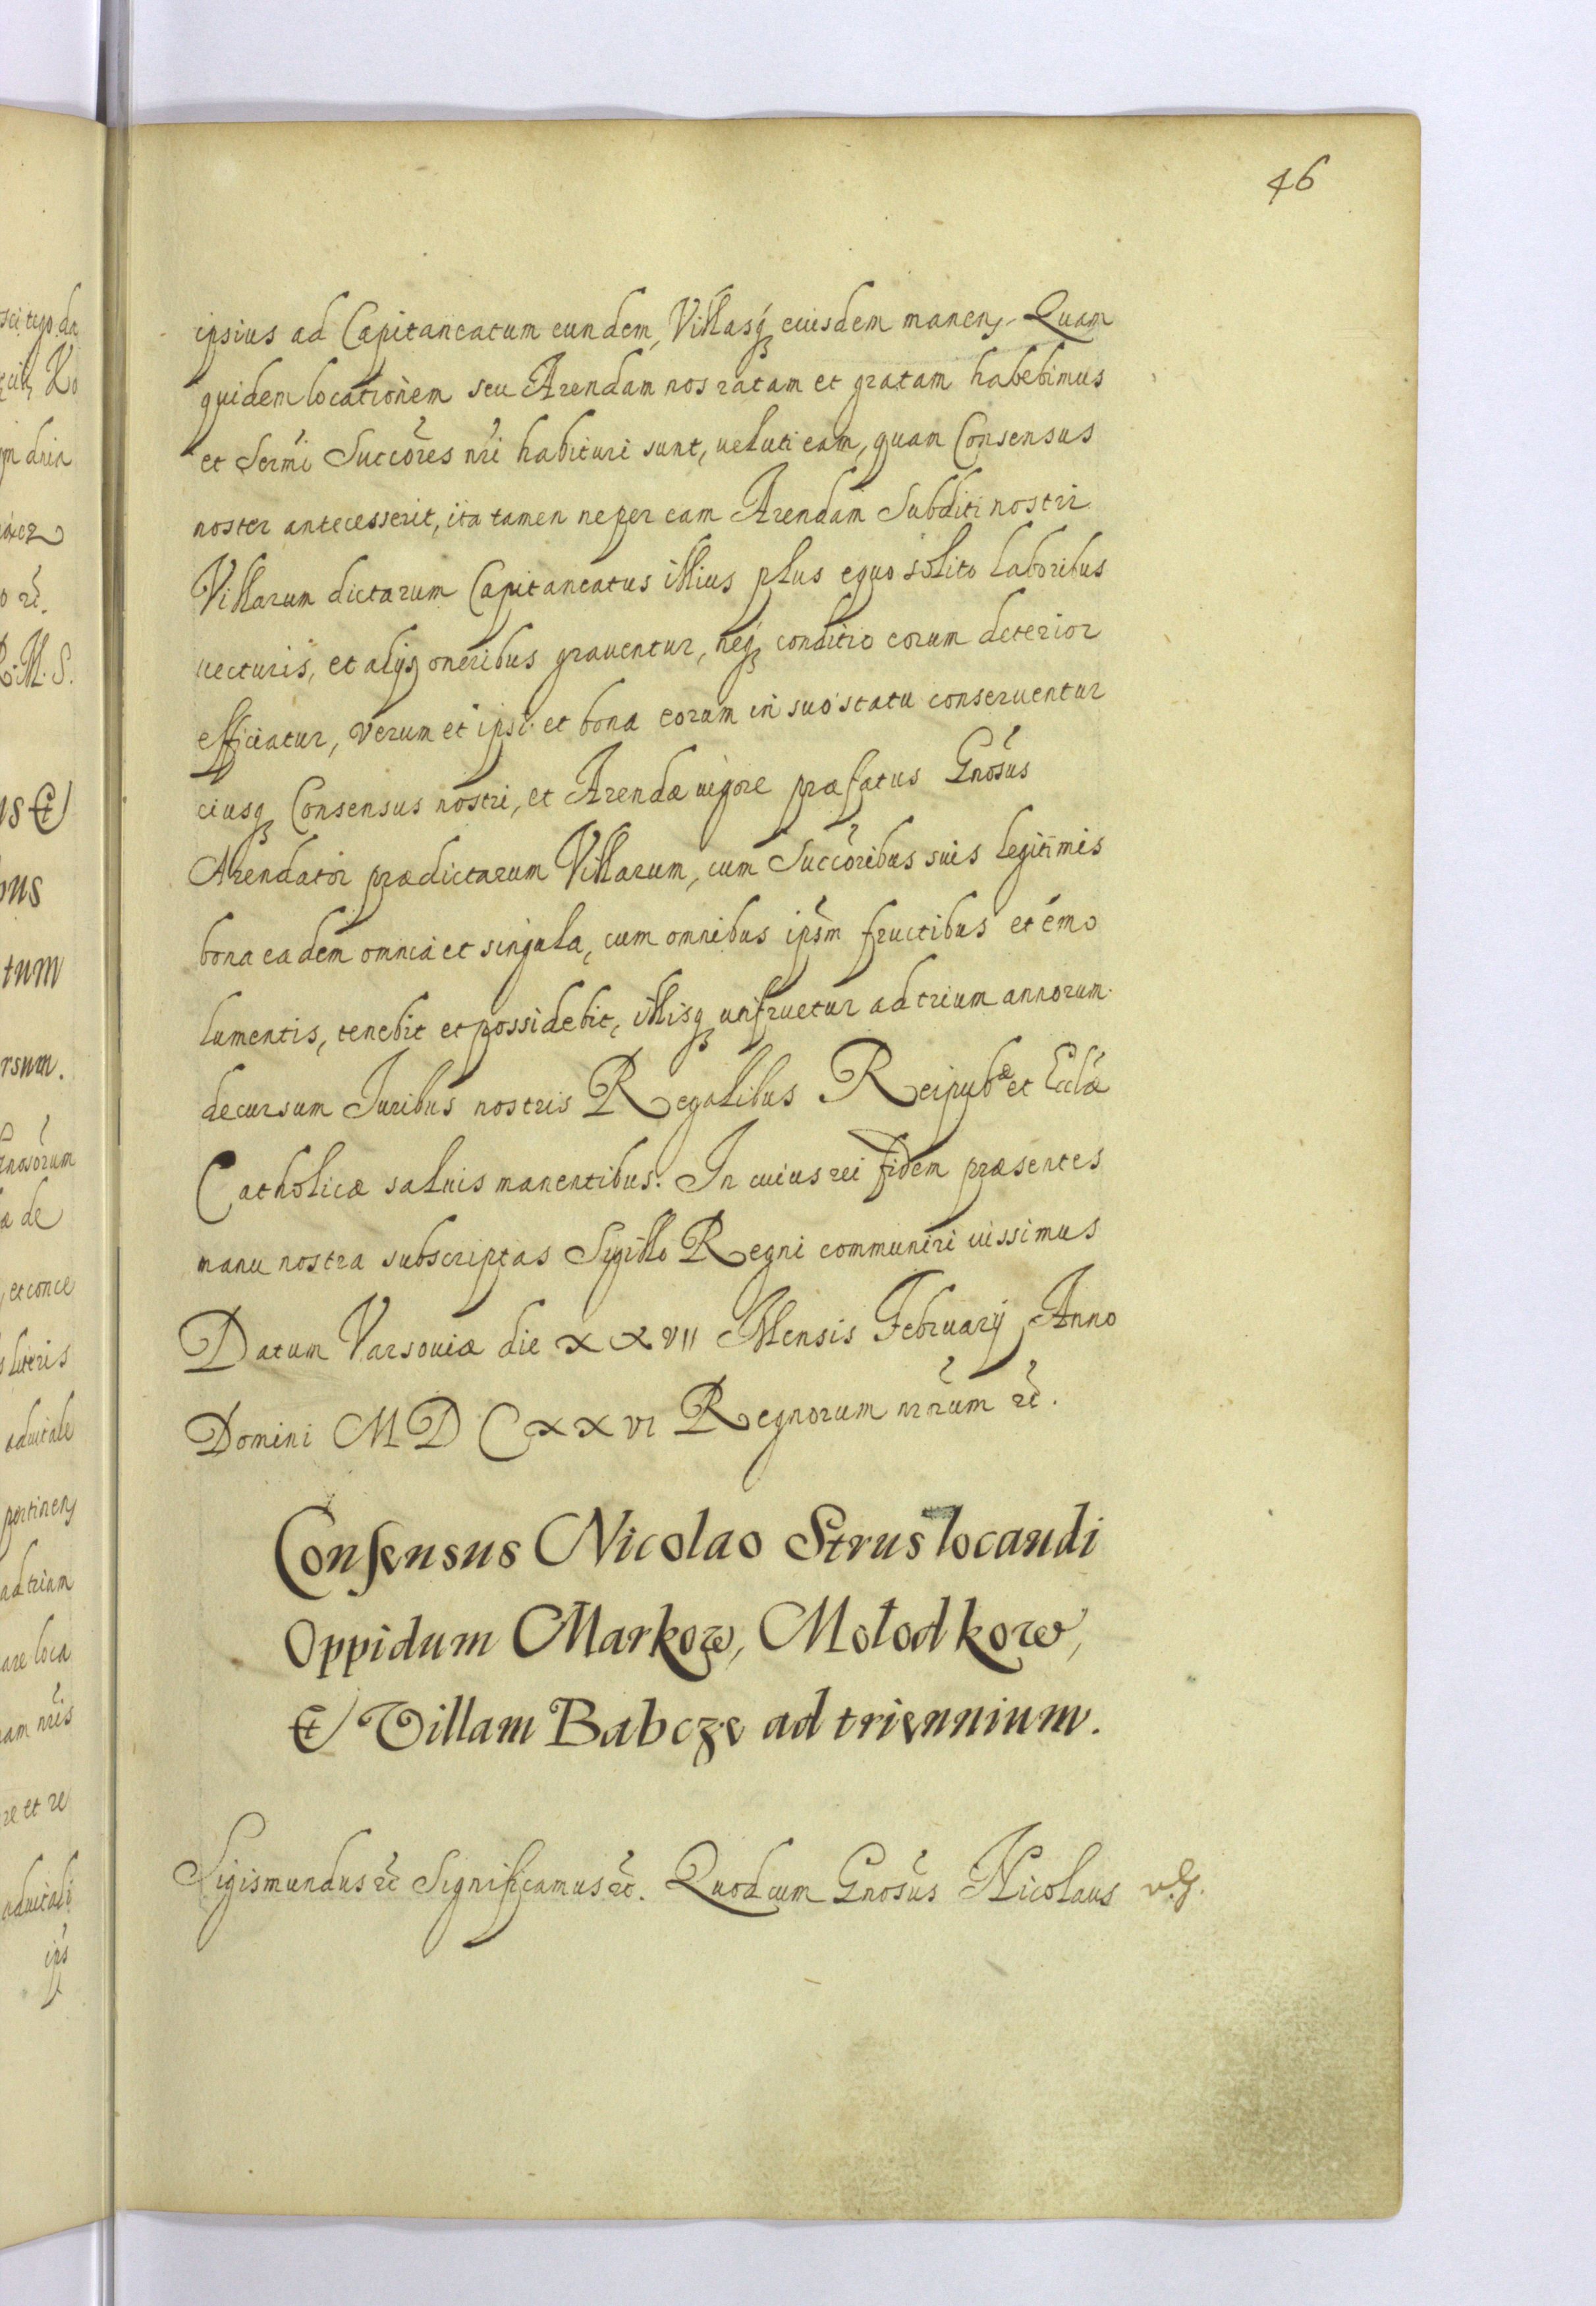 46
ipsius ad Capitaneatum eundem, Villasq; eiusdem manen. Quam
quidem locationem seu Arendam nos ratam et gratam habebimus
et Sermi Succores nri habituri sunt, ueluti eam, quam Consensus
noster antecesserit, ita tamen ne per eam Arendam Subditi nostri
Villarum dictarum Capitaneatus illius plus equo solito laboribus
uecturis, et alijs oneribus grauentur, neq; conditio eorum deterior
efficiatur, verum et ipsi et bona eorum in suo statu conseruentur
eiusq; Consensus nostri, et Arendæ uigore præfatus Gnosus
Arendator prædictarum Villarum, cum Succoribus suis legitimis
bona eadem omnia et singula, cum omnibus ipsm fructibus et emo
lumentis, tenebit et possidebit, illisq; utifruetur ad trium annorum
decursum Iuribus nostris Regalibus Reipubæ et Ecclæ
Catholicæ saluis manentibus. In cuius rei fidem præsentes
manu nostra subscriptas Sigillo Regni communiri iussimus
Datum Varsouiæ die XXVII Mensis February Anno
Domini MDCXXVI Regnorum nrrum etc.
Consensus Nicolao Strus locandi
Oppidum Markow, Mołodkow,
et Villam Babcze ad triennium.
Sigismundus etc Significamus etc. Quod cum Gnosus Nicolaus